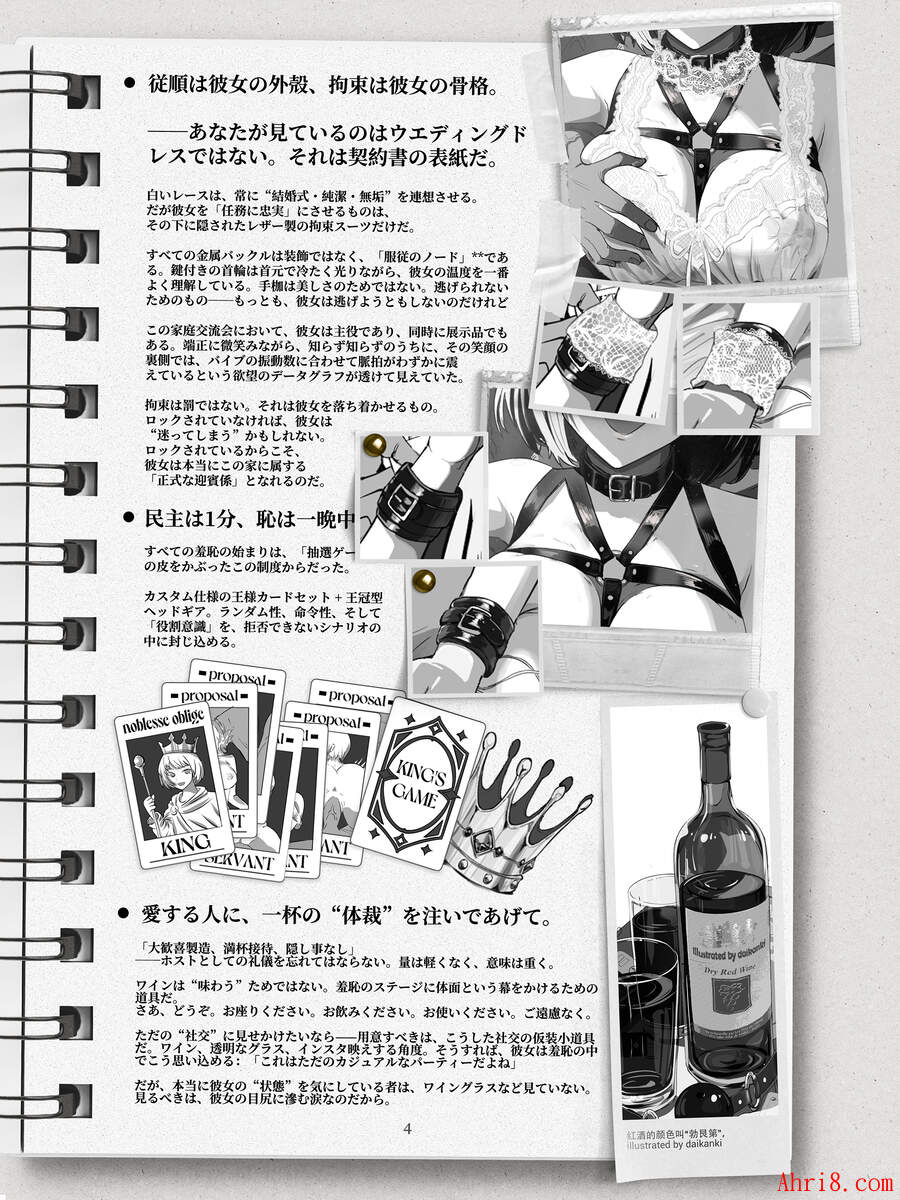 ● 従順は彼女の外殻、拘束は彼女の骨格。
――あなたが見ているのはウエディングド
レスではない。それは契約書の表紙だ。
白いレースは、常に“結婚式・純潔・無垢”を連想させる。
だが彼女を「任務に忠実」にさせるものは、
その下に隠されたレザー製の拘束スーツだけだ。
すべての金属バックルは装飾ではなく、「服従のノード」**であ
る。鍵付きの首輪は首元で冷たく光りながら、彼女の温度を一番
よく理解している。手枷は美しさのためではない。逃げられない
ためのもの――もっとも、彼女は逃げようともしないのだけれど
この家庭交流会において、彼女は主役であり、同時に展示品でも
ある。端正に微笑みながら、知らず知らずのうちに、その笑顔の
裏側では、バイブの振動数に合わせて脈拍がわずかに震
えているという欲望のデータグラフが透けて見えていた。
拘束は罰ではない。それは彼女を落ち着かせるもの。
ロックされていなければ、彼女は
“迷ってしまう”かもしれない。
ロックされているからこそ、
彼女は本当にこの家に属する
「正式な迎賓係」となれるのだ。
● 民主は1分、恥は一晩中
すべての羞恥の始まりは、「抽選ゲー
の皮をかぶったこの制度からだった。
カスタム仕様の王様カードセット + 王冠型
ヘッドギア。ランダム性、命令性、そして
「役割意識」を、拒否できないシナリオの
中に封じ込める。
proposal
proposal
noblesse oblige
KING
SERVANT
NT
ANT
VANT
proposal
proposal
KING'S
GAME
● 愛する人に、一杯の“体裁”を注いであげて。
「大歓喜製造、満杯接待、隠し事なし」
――ホストとしての礼儀を忘れてはならない。量は軽くなく、意味は重く。
ワインは“味わう”ためではない。羞恥のステージに体面という幕をかけるための
道具だ。
さあ、どうぞ。お座りください。お飲みください。お使いください。ご遠慮なく。
ただの“社交”に見せかけたいなら――用意すべきは、こうした社交の仮装小道具
だ。ワイン、透明なグラス、インスタ映えする角度。そうすれば、彼女は羞恥の中
でこう思い込める：「これはただのカジュアルなパーティーだよね」
だが、本当に彼女の“状態”を気にしている者は、ワイングラスなど見ていない。
見るべきは、彼女の目尻に滲む涙なのだから。
illustrated by daikanki
Dry Red Wine
紅酒的顔色叫“勃艮第”,
illustrated by daikanki
4
Ahri8.com